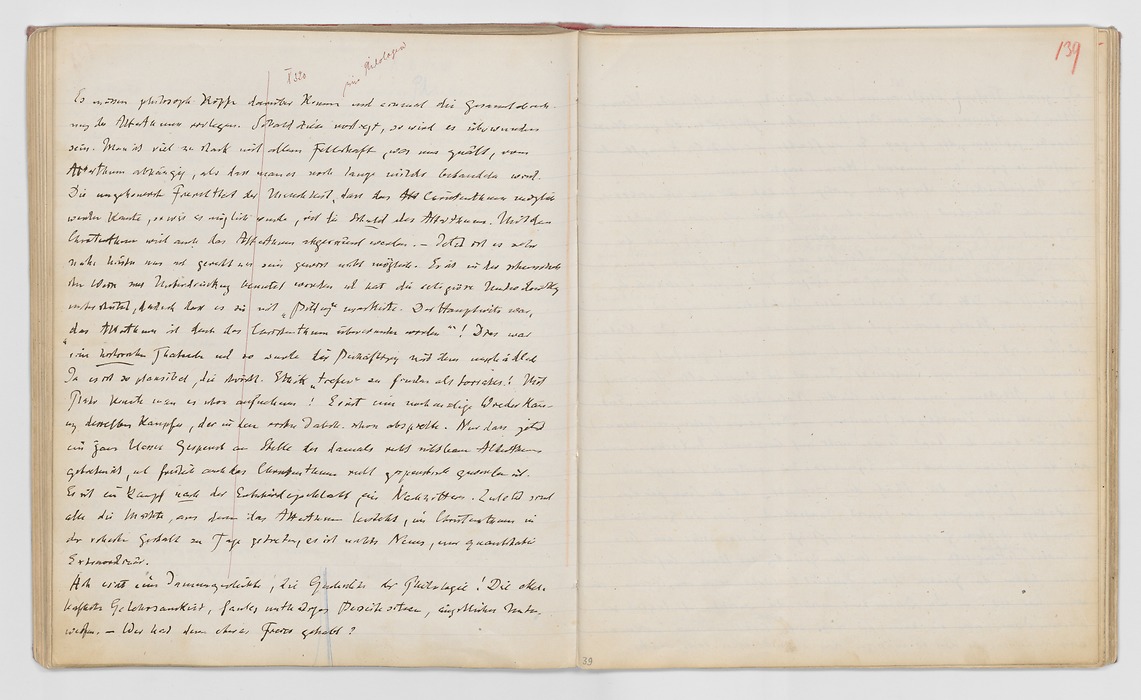 X 320 wir Philologen
139
Es müssen philosoph. Köpfe darüber kommen und einmal die Gesammtabrech-
nung des Alterthums vorlegen. Sobald diese vorliegt, so wird es überwunden
sein. Man ist viel zu stark mit allem Fehlerhaften, was uns quält, vom
Alterthum abhängig, als dass man es noch lange milde behandeln wird.
Die ungeheuerste Frevelthat der Menschheit, dass das Christenthum möglich
werden konnte, so wie es möglich wurde, ist die Schuld des Alterthums. Mit dem
Christenthum wird auch das Alterthum abgeräumt werden. — Jetzt ist es sehr
nahe hinter uns u. gerecht zu sein gewiss nicht möglich. Es ist in der scheusslich-
sten Weise zur Unterdrückung benutzt worden u. hat die religiöse Unterdrückung
unterstützt, dadurch dass es sie mit „Bildung" maskirte. Der Hauptwitz war,
„das Alterthum ist durch das Christenthum überwunden worden"! Dies war
eine historische Thatsache und so wurde die Beschäftigung mit ihm unschädlich.
Ja es ist so plausibel, die christl. Ethik „tiefer" zu finden als Socrates! Mit
Plato konnte man es schon aufnehmen! Es ist eine nochmalige Wiederkäu-
ung desselben Kampfes, der in den ersten Jahrh. schon abspielte. Nur dass jetzt
ein ganz blasses Gespenst an Stelle des damals recht sichtbaren Alterthums
getreten ist, u. freilich auch das Christenthum recht gespenstisch geworden ist.
Es ist ein Kampf nach der Entscheidungsschlacht, ein Nachzittern. Zuletzt sind
alle die Mächte, aus denen das Alterthum besteht, im Christenthum in
der rohesten Gestalt zu Tage getreten, es ist nichts Neues, nur quantitativ
Extraordinär.
Ach es ist eine Jammergeschichte, die Geschichte der Philologie! Die ekel-
hafteste Gelehrsamkeit, faules unthätiges Beiseitesitzen, ängstliches Unter-
werfen. — Wer hat denn etwas Freies gehabt?
39